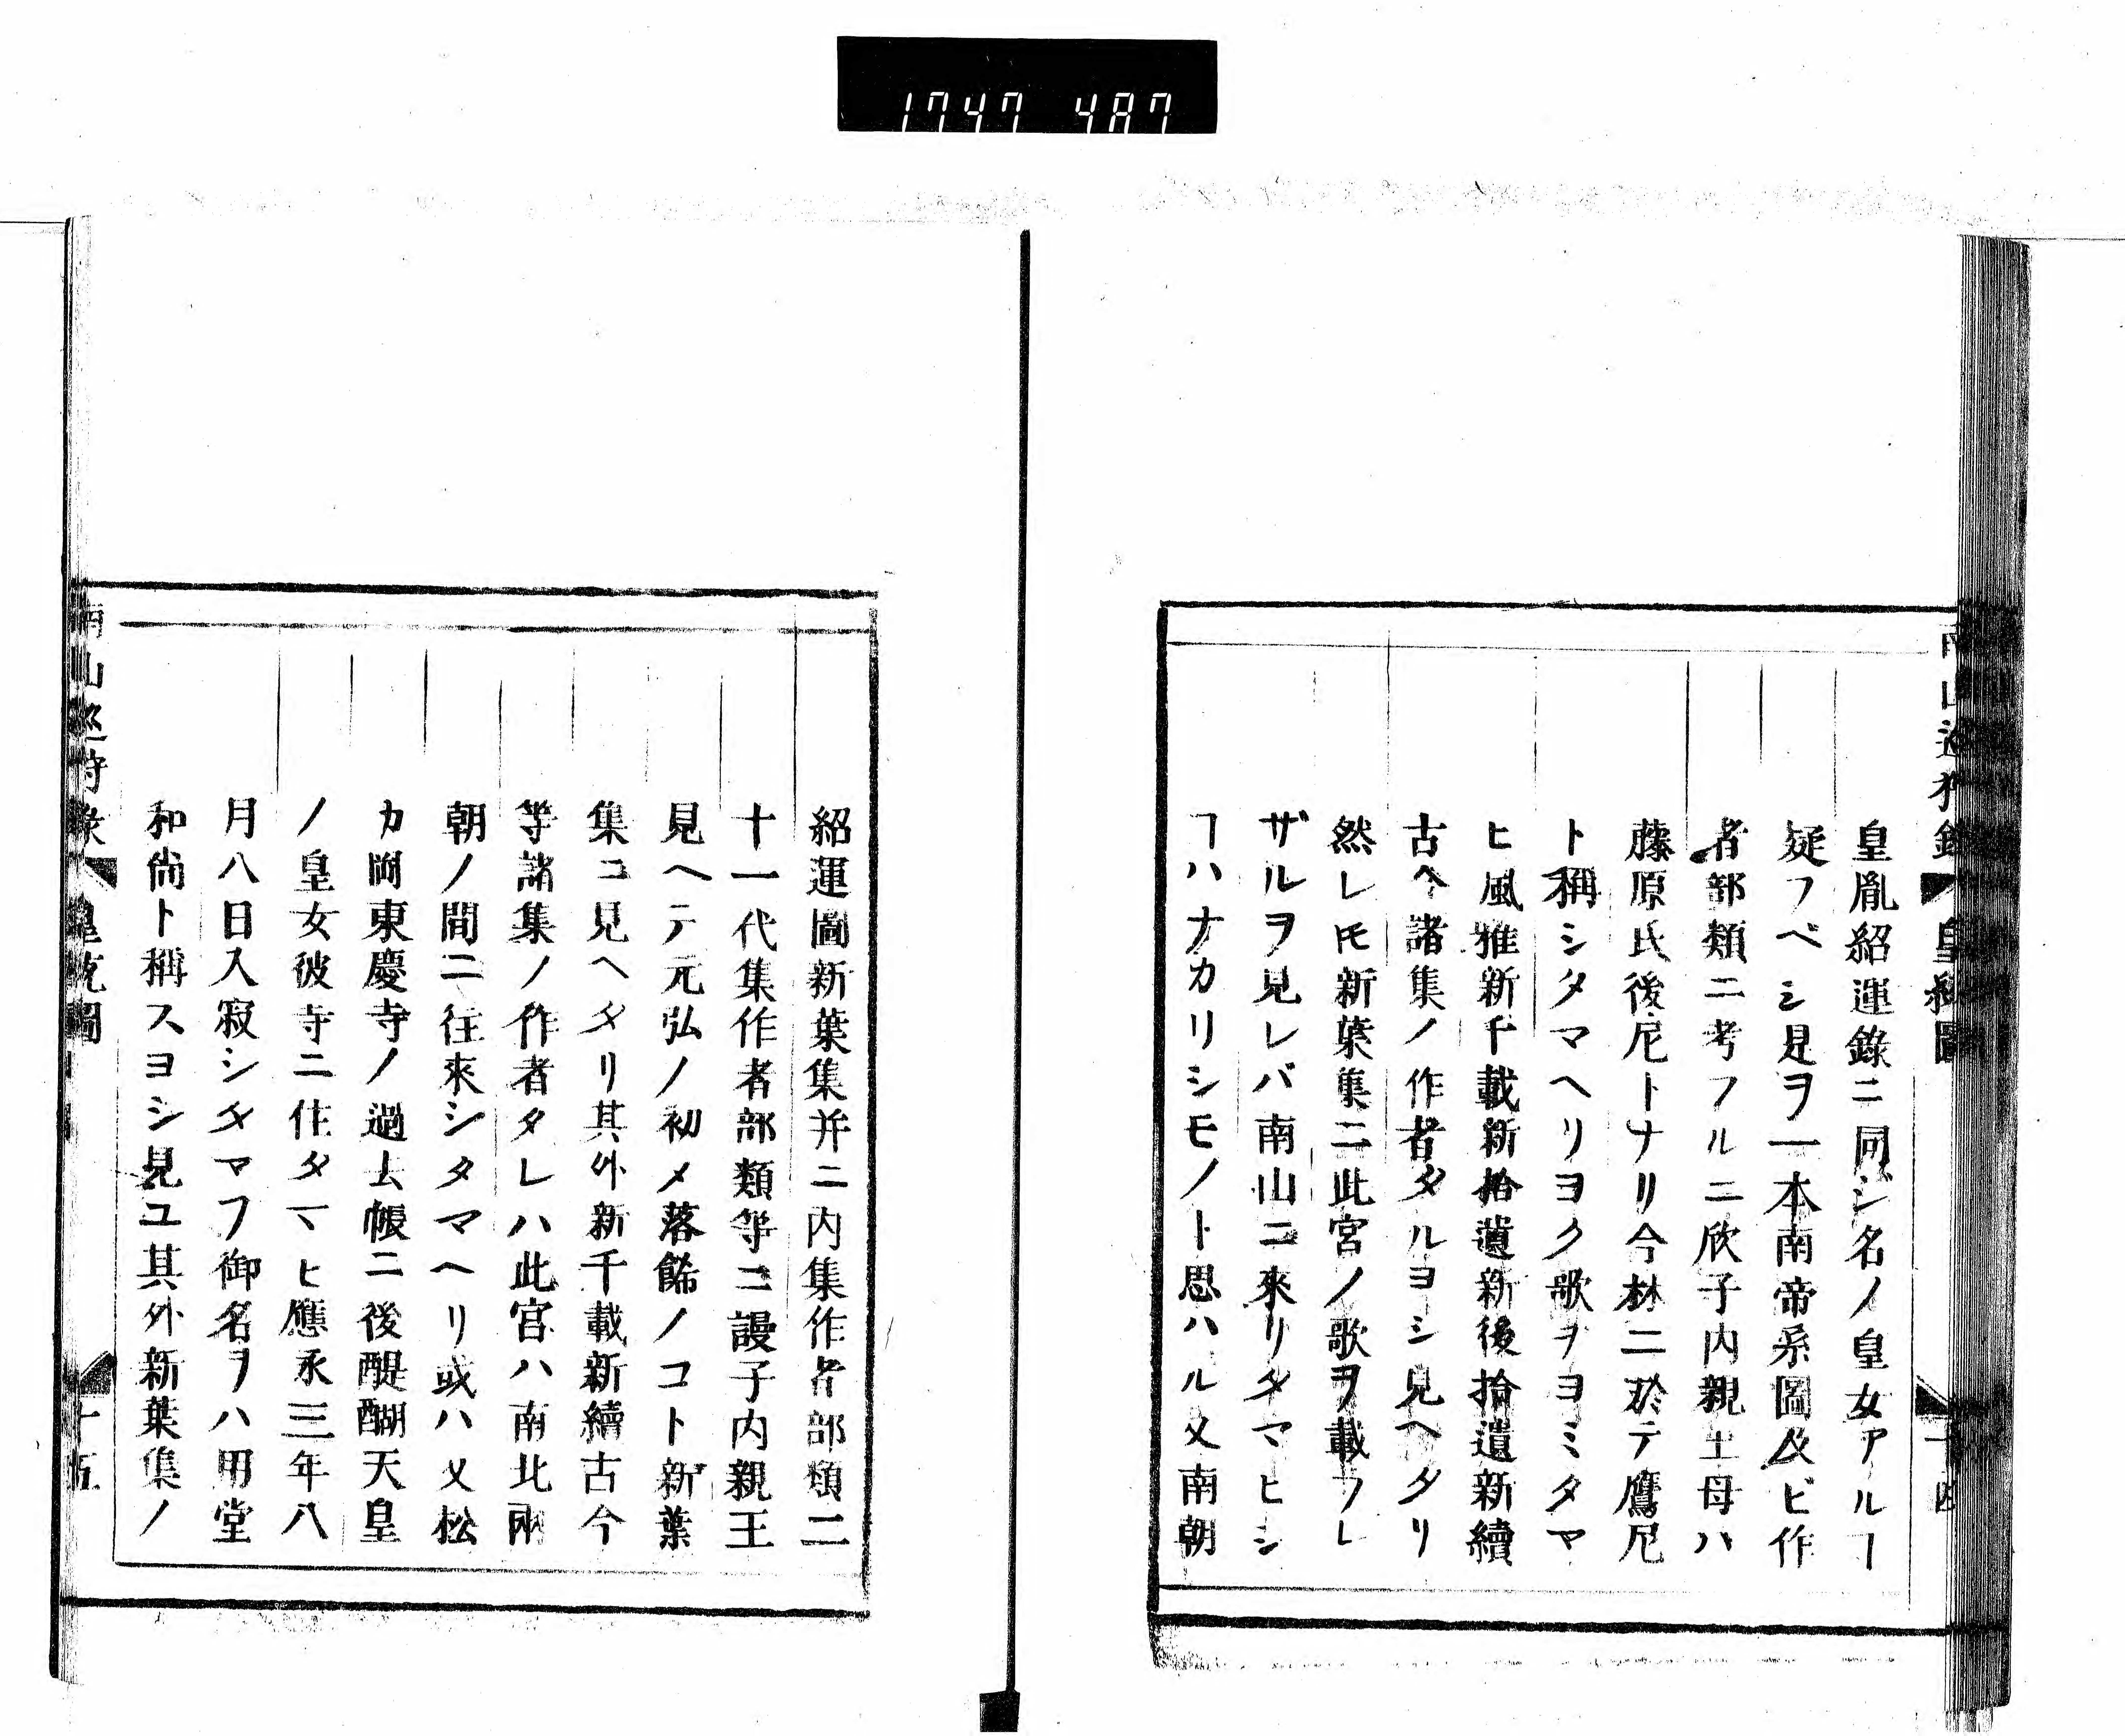 1747 487
南山巡狩錄 皇統圖 十四
皇胤紹運錄ニ同シ名ノ皇女アルヿ
疑フベシ是ヲ一本南帝系圖及ビ作
者部類ニ考フルニ欣子内親王母ハ
藤原氏後尼トナリ今林ニ於テ鷹尼
ト稱シタマヘリヨク歌ヲヨミタマ
ヒ風雅新千載新拾遺新後拾遺新續
古今諸集ノ作者タルヨシ見ヘタリ
然レ𪜈新葉集ニ此宮ノ歌ヲ載フレ
ザルヲ見レバ南山ニ來リタマヒシ
ヿハナカリシモノト思ハル又南朝
紹運圖新葉集并ニ内集作者部類二
十一代集作者部類等ニ謾子内親王
見ヘテ元弘ノ初メ落餝ノコト新葉
集ニ見ヘタリ其外新千載新續古今
等諸集ノ作者タレハ此宮ハ南北兩
朝ノ間ニ往來シタマヘリ或ハ又松
カ岡東慶寺ノ過去帳ニ後醍醐天皇
ノ皇女彼寺ニ住タマヒ應永三年八
月八日入寂シタマフ御名ヲハ用堂
和尚ト稱スヨシ見ユ其外新葉集ノ
南山巡狩錄 皇統圖 十五